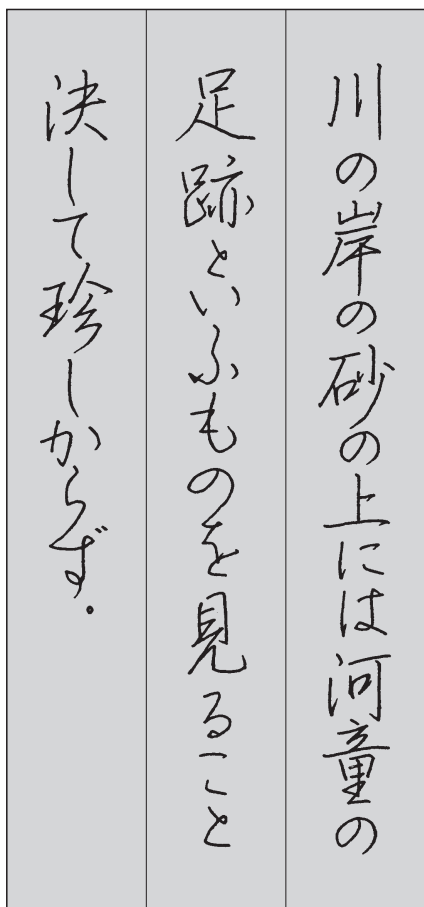 川の岸の砂の上には河童の
足跡といふものを見ること
決して珍しからず．